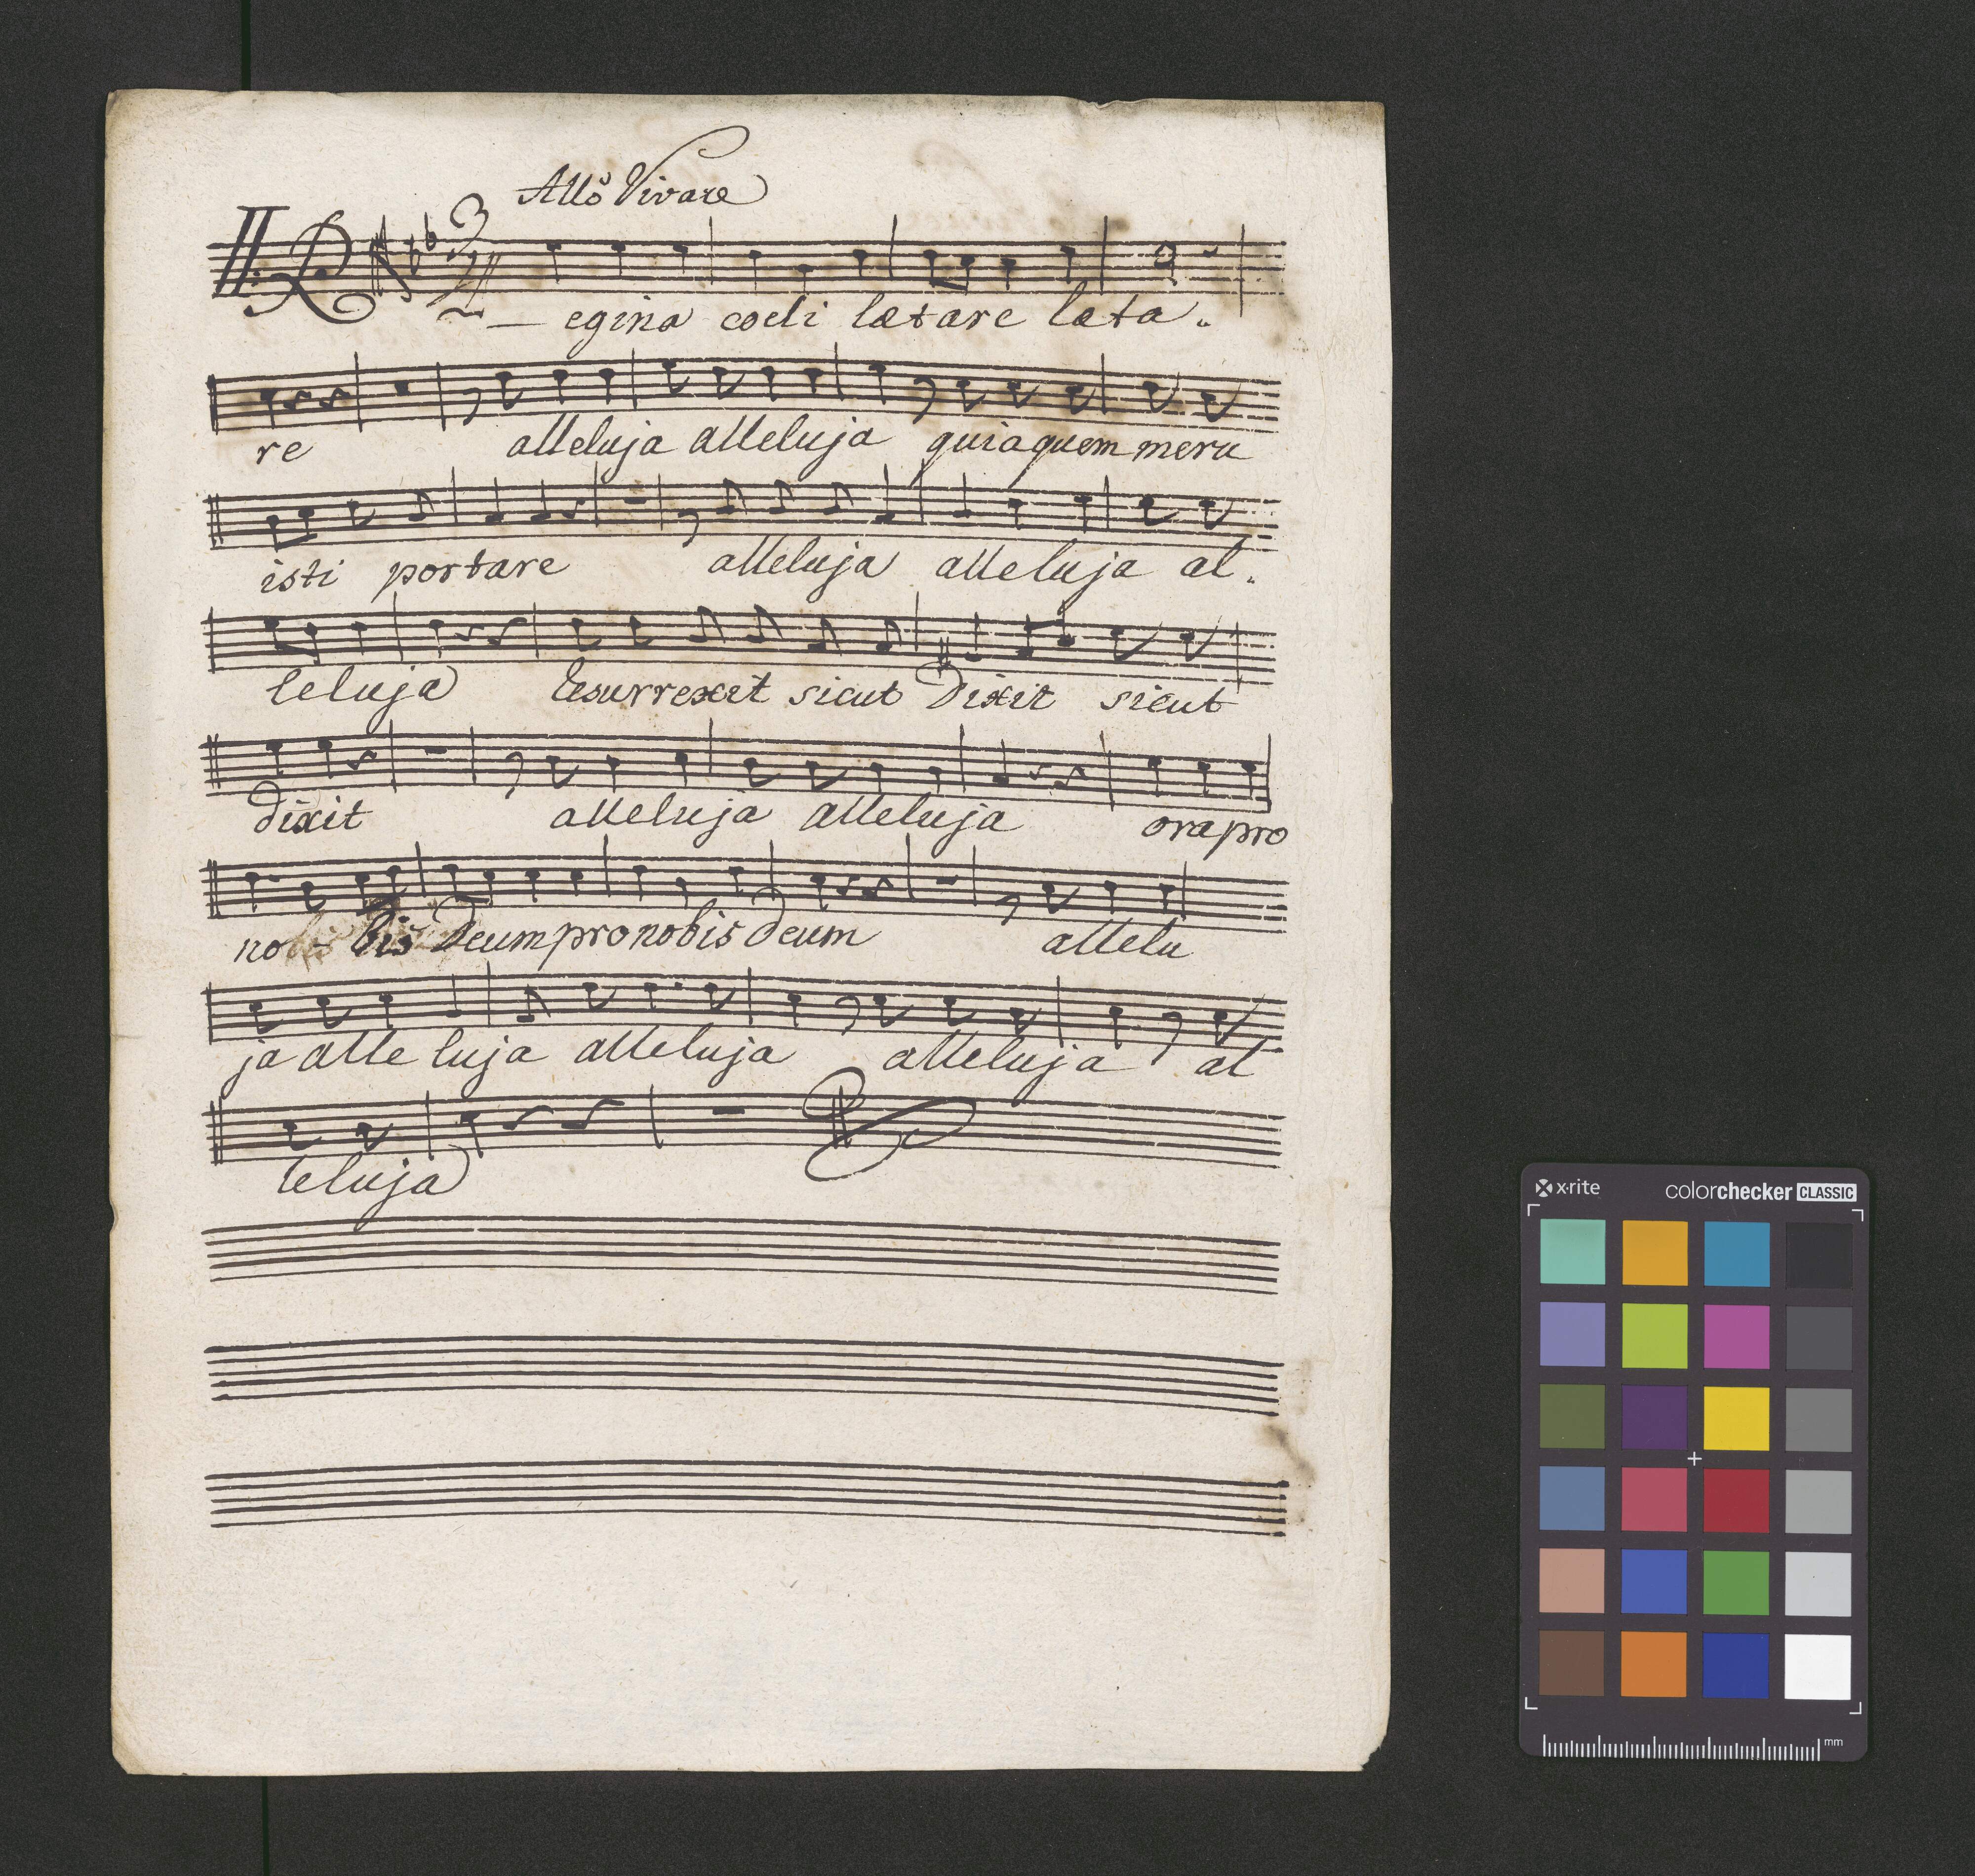 Allo Vivace
II. R
3/4
— egina coeli lætare læta.
re alleluja alleluja quia quem meru
isti portare alleluja alleluja al.
leluja Resurrexit sicut Dixit sicut
dixit alleluja alleluja ora pro
no - bis Deum pro nobis deum allelu
ja alle luja alleluja alleluja al
leluja
x·rite colorchecker CLASSIC
mm